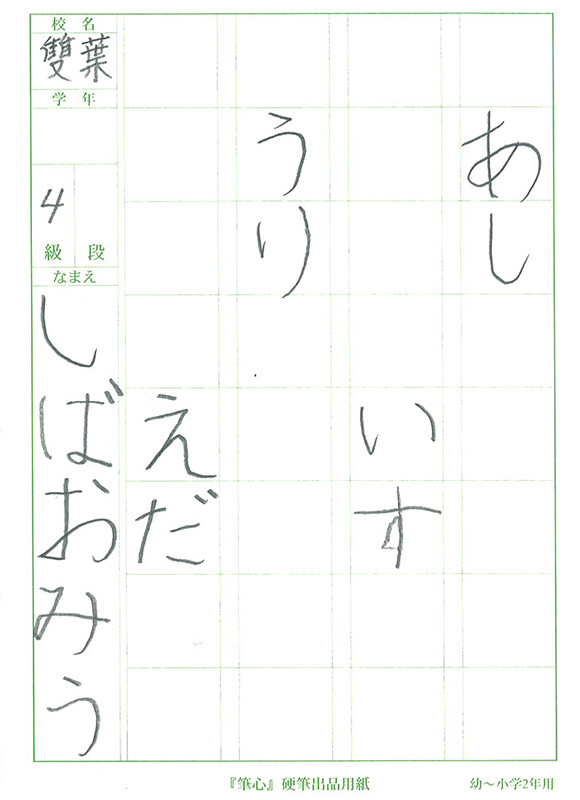 あし
いす
うり
えだ
校名
雙葉
学年
4
級 段
なまえ
しばおみう
『筆心』硬筆出品用紙
幼〜小学2年用